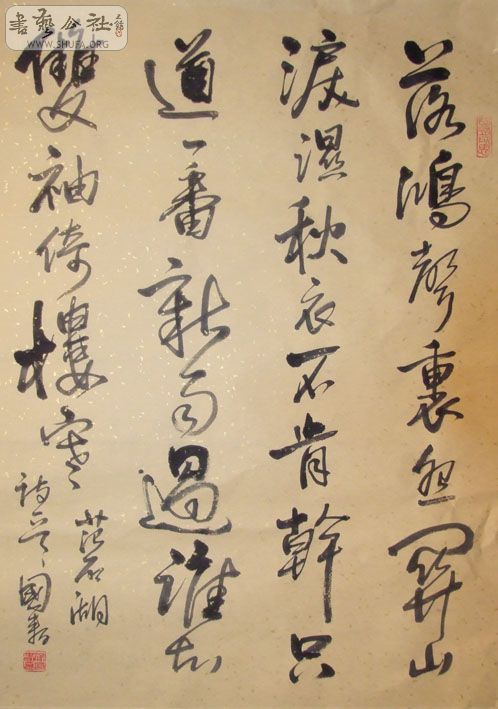 書藝公社
WWW.SHUFA.ORG
落鴻聲裏怨關山
淚濕秋衣不肯幹只
道一番新雨過誰知
雙袖倚樓寒
范石湖
詩 國